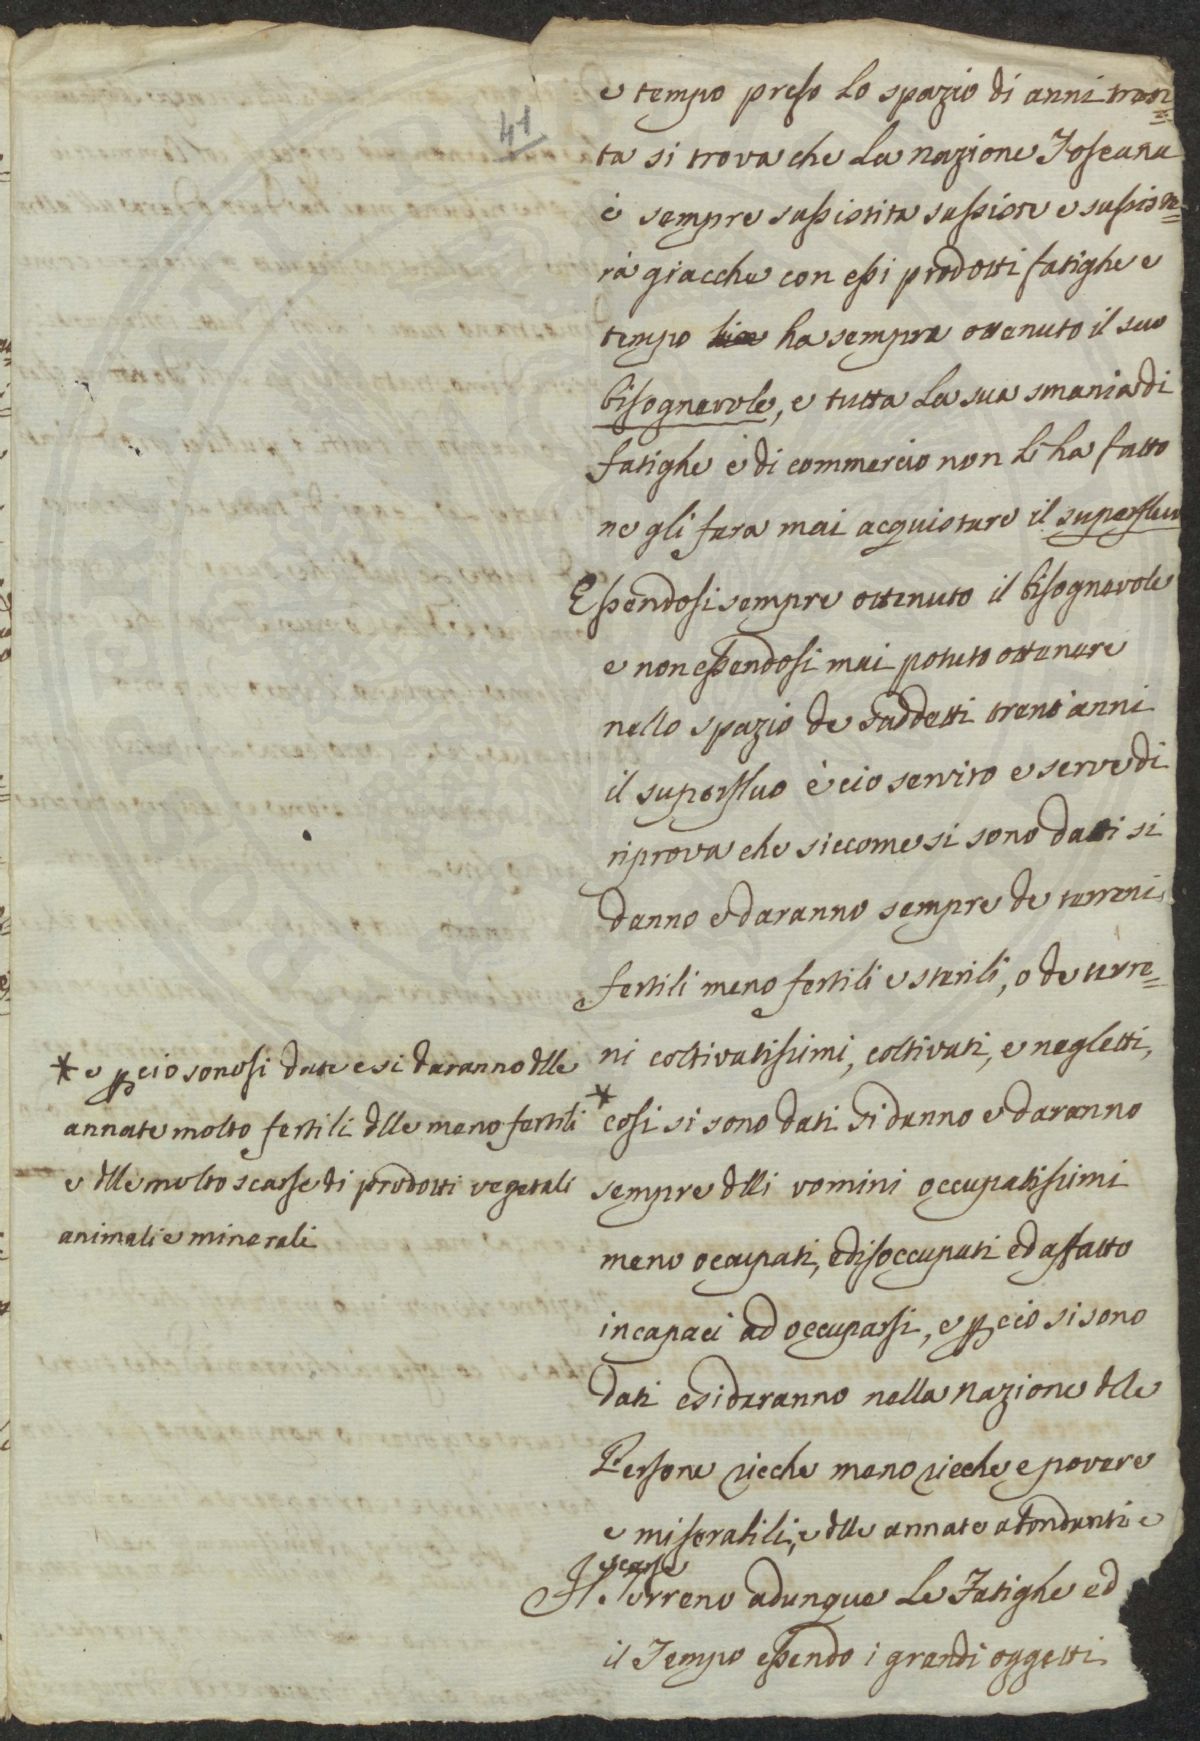 41
e tempo preso lo spazio di anni tren=
ta si trova che la nazione Toscana
è sempre sussistita sussiste e sussiste=
rà giacche con essi prodotti fatighe e
tempo ha sempre ottenuto il suo
bisognevole, e tutta la sua smania di
fatighe e di commercio non li ha fatto
ne gli fara mai acquistare il superfluo
Essendosi sempre ottenuto il bisognevole
e non essendosi mai potuto ottenere
nello spazio de suddetti trent'anni
il superfluo è cio servito e serve di
riprova che siccome si sono dati si
danno e daranno sempre de terreni
fertili meno fertili e sterili, o de terre=
ni coltivatissimi, coltivati, e negletti,
* cosi si sono dati si danno e daranno
sempre dlli uomini occupatissimi
meno occupati, e disoccupati ed affatto
incapaci ad occuparsi, e p cio si sono
dati e si daranno nella Nazione dlle
Persone ricche meno ricche e povere
e miserabili, e dlle annate abondanti e
scarse
Il Terreno adunque le Fatighe ed
il Tempo essendo i grandi oggetti
* e p cio sonosi date e si daranno dlle
annate molto fertili dlle meno fertili
e dlle molto scarse di prodotti vegetali
animali e minerali